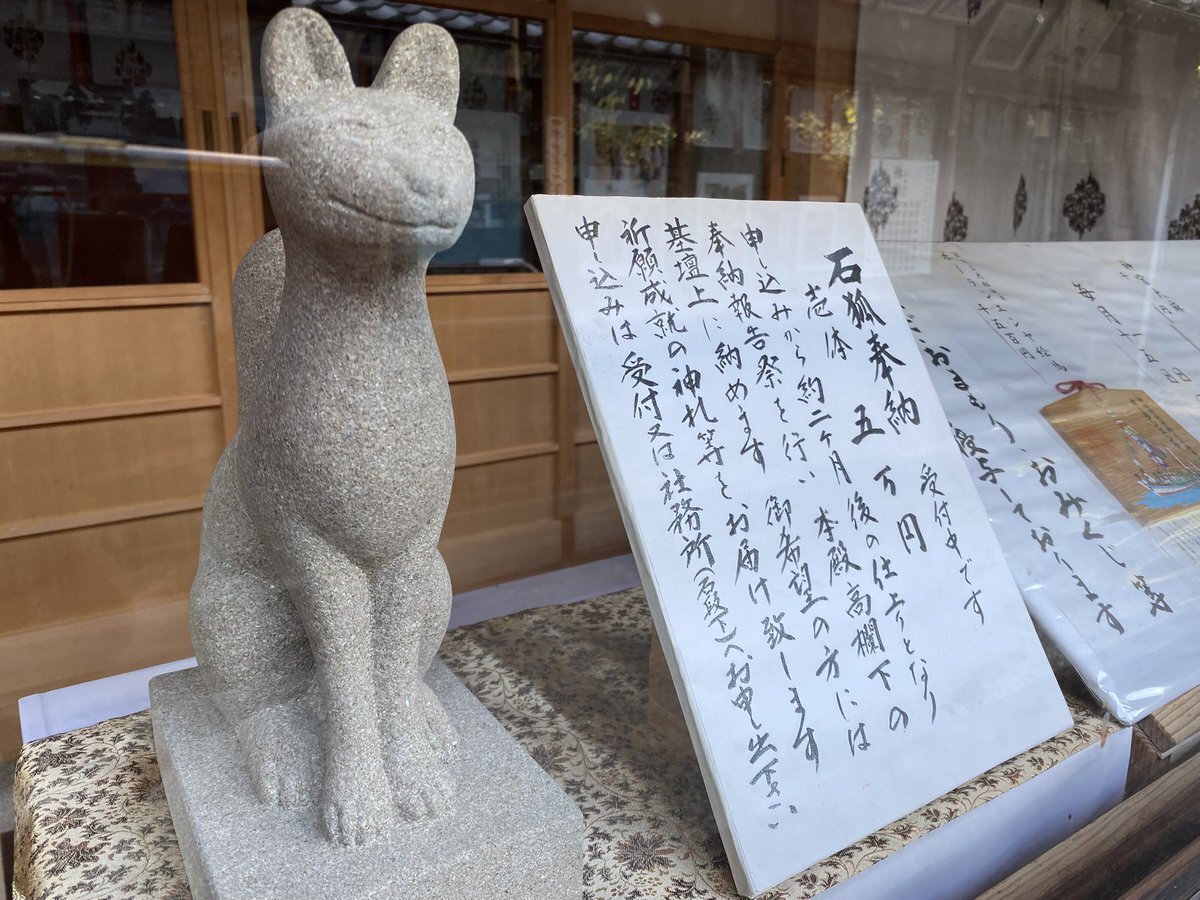 石狐奉納 受付中です
壱体 五万円
申し込みから約二ヶ月後の仕上りとなり
奉納報告祭を行い 本殿高欄下の
基壇上に納めます 御希望の方には
祈願成就の神札等をお届け致します
申し込みは受付又は社務所(石段下)へお申し出下さい
毎月十五日
十五百円
おまもり、おみくじ等
授与しております